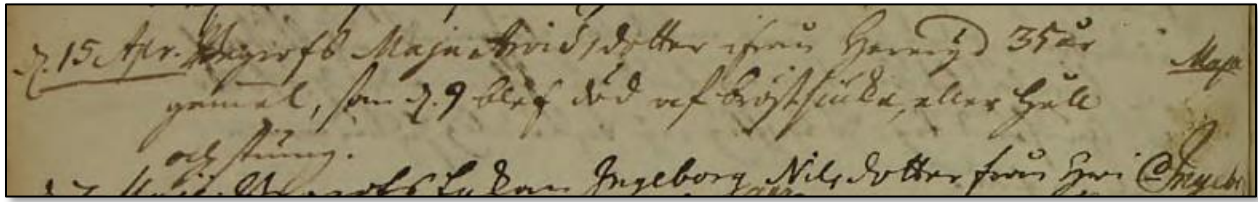 d. 15 Apr. Begrofs Maja Arvidsdotter ifrån Hererÿd 35 år Maja
gammal, som d. 9 blef död af bröstsiuka, eller håll
och styng.
Begrofs Enkan Ingeborg Nilsdotter från